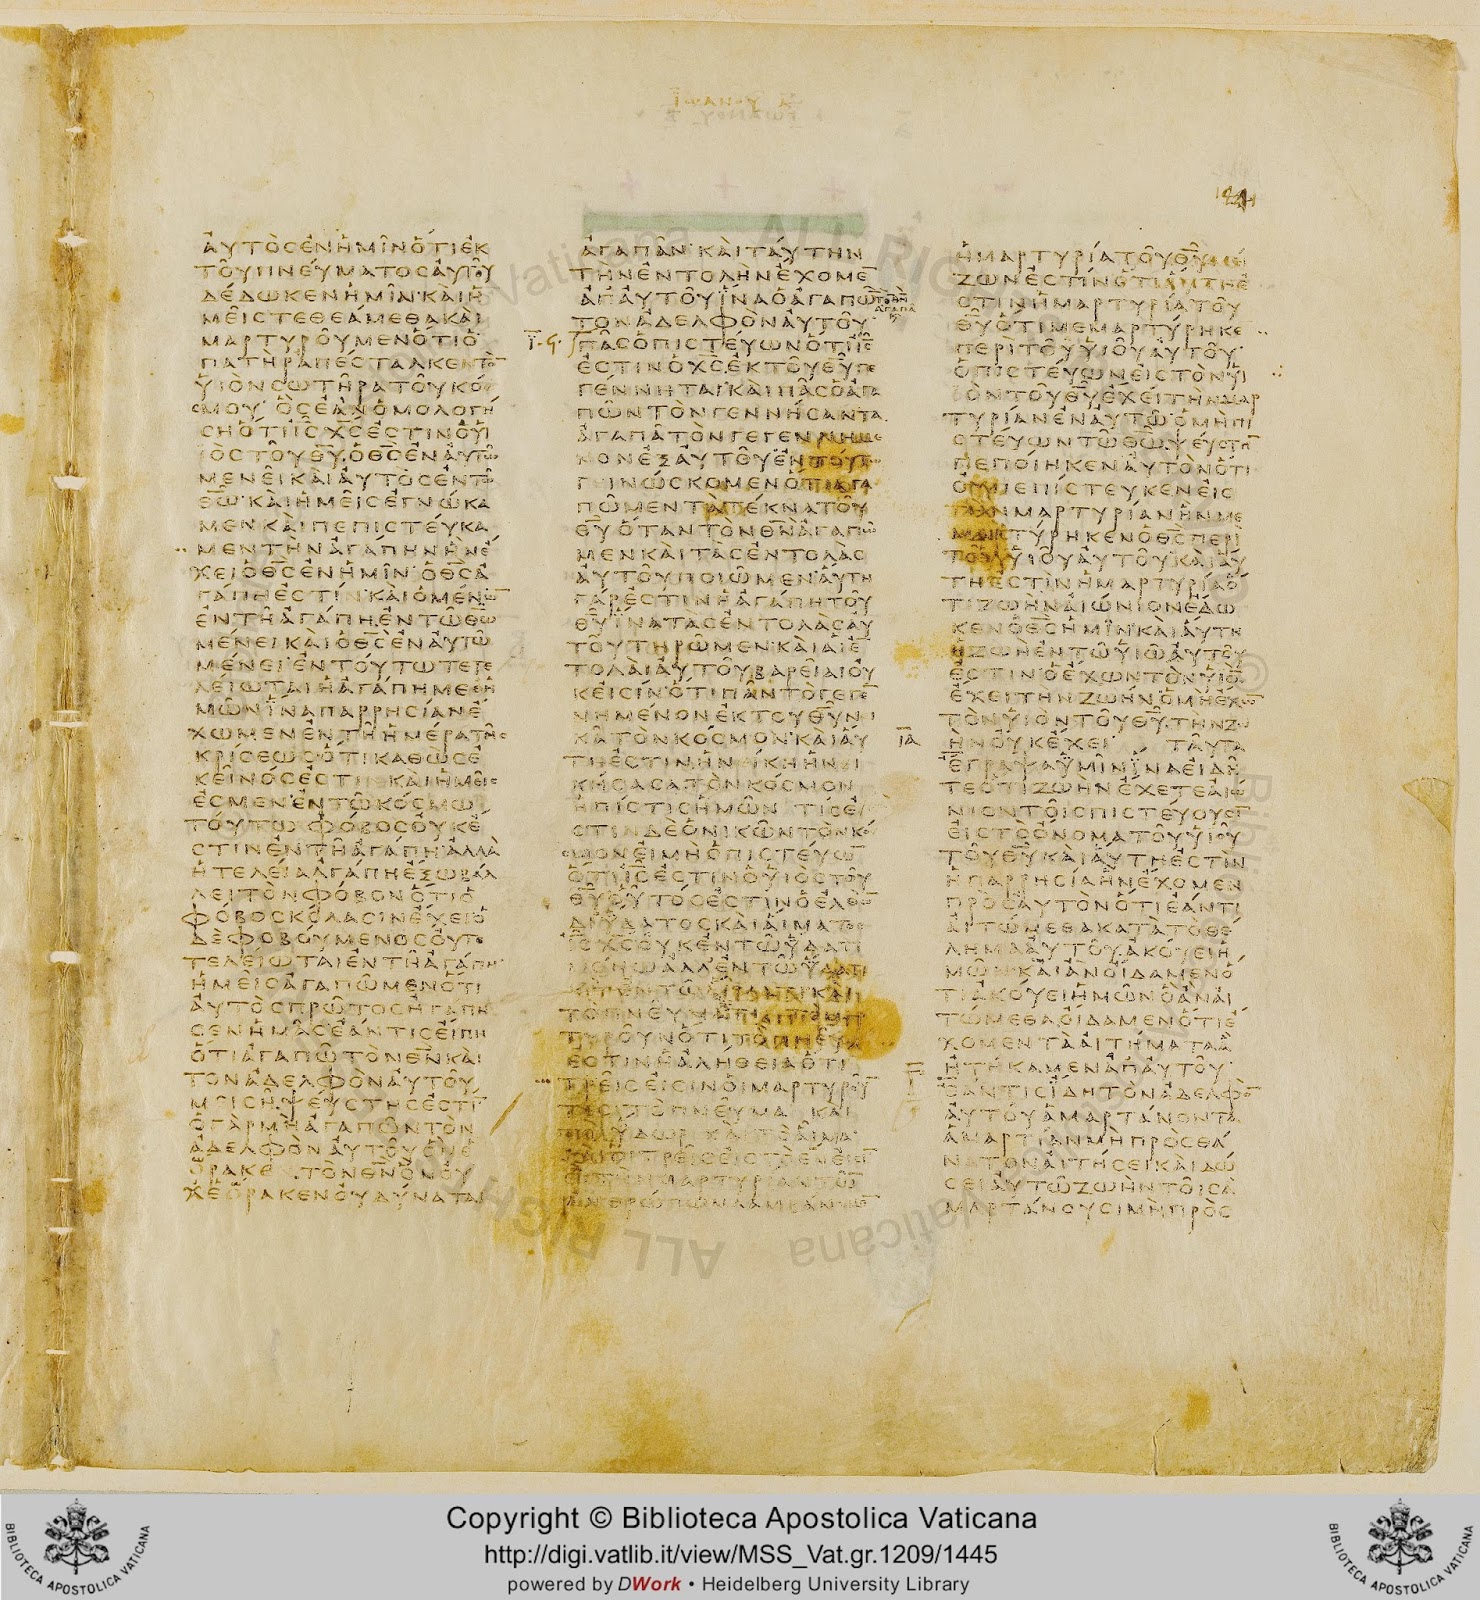 ΑΥΤΟΣ ΕΝ ΗΜΙΝ ΟΤΙ ΕΚ
ΤΟΥ ΠΝΕΥΜΑΤΟΣ ΑΥΤΟΥ
ΔΕΔΩΚΕΝ ΗΜΙΝ ΚΑΙ Η
ΜΕΙΣ ΤΕΘΕΑΜΕΘΑ ΚΑΙ
ΜΑΡΤΥΡΟΥΜΕΝ ΟΤΙ Ο
ΠΑΤΗΡ ΑΠΕΣΤΑΛΚΕΝ ΤΟ̅
ΥΙΟΝ ΣΩΤΗΡΑ ΤΟΥ ΚΟ
ΣΜΟΥ ΟΣ ΕΑΝ ΟΜΟΛΟΓΗ
ΣΗ ΟΤΙ ΙΣ ΧΣ ΕΣΤΙΝ Ο ΥΙ
ΟΣ ΤΟΥ ΘΥ Ο ΘΣ ΕΝ ΑΥΤΩ
ΜΕΝΕΙ ΚΑΙ ΑΥΤΟΣ ΕΝ ΤΩ
ΘΩ ΚΑΙ ΗΜΕΙΣ ΕΓΝΩΚΑ
ΜΕΝ ΚΑΙ ΠΕΠΙΣΤΕΥΚΑ
ΜΕΝ ΤΗΝ ΑΓΑΠΗΝ ΗΝ Ε
ΧΕΙ Ο ΘΣ ΕΝ ΗΜΙΝ Ο ΘΣ Α
ΓΑΠΗ ΕΣΤΙΝ ΚΑΙ Ο ΜΕΝΩ̅
ΕΝ ΤΗ ΑΓΑΠΗ ΕΝ ΤΩ ΘΩ
ΜΕΝΕΙ ΚΑΙ Ο ΘΣ ΕΝ ΑΥΤΩ
ΜΕΝΕΙ ΕΝ ΤΟΥΤΩ ΤΕΤΕ
ΛΕΙΩΤΑΙ Η ΑΓΑΠΗ ΜΕΘ Η
ΜΩΝ ΙΝΑ ΠΑΡΡΗΣΙΑΝ Ε
ΧΩΜΕΝ ΕΝ ΤΗ ΗΜΕΡΑ ΤΗΣ
ΚΡΙΣΕΩΣ ΟΤΙ ΚΑΘΩΣ Ε
ΚΕΙΝΟΣ ΕΣΤΙ ΚΑΙ ΗΜΕΙΣ
ΕΣΜΕΝ ΕΝ ΤΩ ΚΟΣΜΩ
ΤΟΥΤΩ ΦΟΒΟΣ ΟΥΚ Ε
ΣΤΙΝ ΕΝ ΤΗ ΑΓΑΠΗ ΑΛΛΑ
Η ΤΕΛΕΙΑ ΑΓΑΠΗ ΕΞΩ ΒΑΛ
ΛΕΙ ΤΟΝ ΦΟΒΟΝ ΟΤΙ Ο
ΦΟΒΟΣ ΚΟΛΑΣΙΝ ΕΧΕΙ Ο
ΔΕ ΦΟΒΟΥΜΕΝΟΣ ΟΥ ΤΕ
ΤΕΛΕΙΩΤΑΙ ΕΝ ΤΗ ΑΓΑΠΗ
ΗΜΕΙΣ ΑΓΑΠΩΜΕΝ ΟΤΙ
ΑΥΤΟΣ ΠΡΩΤΟΣ ΗΓΑΠΗ
ΣΕΝ ΗΜΑΣ ΕΑΝ ΤΙΣ ΕΙΠΗ
ΟΤΙ ΑΓΑΠΩ ΤΟΝ ΘΝ ΚΑΙ
ΤΟΝ ΑΔΕΛΦΟΝ ΑΥΤΟΥ
ΜΕΙΣΗ ΨΕΥΣΤΗΣ ΕΣΤΙ̅
Ο ΓΑΡ ΜΗ ΑΓΑΠΩΝ ΤΟΝ
ΑΔΕΛΦΟΝ ΑΥΤΟΥ ΟΝ Ε
ΟΡΑΚΕ ΤΟΝ ΘΝ ΟΝ ΟΥ
Χ ΕΟΡΑΚΕΝ ΟΥ ΔΥΝΑΤΑΙ
ΑΓΑΠΑΝ ΚΑΙ ΤΑΥΤΗΝ
ΤΗΝ ΕΝΤΟΛΗΝ ΕΧΟΜΕ̅
ΑΠ ΑΥΤΟΥ ΙΝΑ Ο ΑΓΑΠΩ̅
ΤΟΝ ΑΔΕΛΦΟΝ ΑΥΤΟΥ
ΠΑΣ Ο ΠΙΣΤΕΥΩΝ ΟΤΙ ΙΣ
ΕΣΤΙΝ Ο ΧΣ ΕΚ ΤΟΥ ΘΥ ΓΕ
ΓΕΝΝΗΤΑΙ ΚΑΙ ΠΑΣ Ο ΑΓΑ
ΠΩΝ ΤΟΝ ΓΕΝΝΗΣΑΝΤΑ
ΑΓΑΠΑ ΤΟΝ ΓΕΓΕΝΝΗΜΕ
ΝΟΝ ΕΞ ΑΥΤΟΥ ΕΝ ΤΟΥΤΩ
ΓΙΝΩΣΚΟΜΕΝ ΟΤΙ ΑΓΑ
ΠΩΜΕΝ ΤΑ ΤΕΚΝΑ ΤΟΥ
ΘΥ ΟΤΑΝ ΤΟΝ ΘΝ ΑΓΑΠΩ
ΜΕΝ ΚΑΙ ΤΑΣ ΕΝΤΟΛΑΣ
ΑΥΤΟΥ ΠΟΙΩΜΕΝ ΑΥΤΗ
ΓΑΡ ΕΣΤΙΝ Η ΑΓΑΠΗ ΤΟΥ
ΘΥ ΙΝΑ ΤΑΣ ΕΝΤΟΛΑΣ ΑΥ
ΤΟΥ ΤΗΡΩΜΕΝ ΚΑΙ ΑΙ Ε̅
ΤΟΛΑΙ ΑΥΤΟΥ ΒΑΡΕΙΑΙ ΟΥ
Κ ΕΙΣΙΝ ΟΤΙ ΠΑΝ ΤΟ ΓΕΓΕ̅
ΝΗΜΕΝΟΝ ΕΚ ΤΟΥ ΘΥ ΝΙ
ΚΑ ΤΟΝ ΚΟΣΜΟΝ ΚΑΙ ΑΥ
ΤΗ ΕΣΤΙΝ Η ΝΙΚΗ Η ΝΙ
ΚΗΣΑΣΑ ΤΟΝ ΚΟΣΜΟΝ
Η ΠΙΣΤΙΣ ΗΜΩΝ ΤΙΣ Ε
ΣΤΙΝ ΔΕ Ο ΝΙΚΩΝ ΤΟΝ ΚΟ
ΣΜΟΝ ΕΙ ΜΗ Ο ΠΙΣΤΕΥΩ̅
ΟΤΙ ΙΣ ΕΣΤΙΝ Ο ΥΙΟΣ ΤΟΥ
ΘΥ ΟΥΤΟΣ ΕΣΤΙΝ Ο ΕΛΘΩ̅
ΔΙ ΥΔΑΤΟΣ ΚΑΙ ΑΙΜΑΤΟΣ
ΙΣ ΧΣ ΟΥΚ ΕΝ ΤΩ ΥΔΑΤΙ
ΜΟΝΩ ΑΛΛ ΕΝ ΤΩ ΥΔΑΤΙ
ΚΑΙ ΕΝ ΤΩ ΑΙΜΑΤΙ ΚΑΙ
ΤΟ ΠΝΕΥΜΑ ΕΣΤΙΝ ΤΟ ΜΑΡ
ΤΥΡΟΥΝ ΟΤΙ ΤΟ ΠΝΕΥΜΑ
ΕΣΤΙΝ Η ΑΛΗΘΕΙΑ ΟΤΙ
ΤΡΕΙΣ ΕΙΣΙΝ ΟΙ ΜΑΡΤΥΡΟΥ̅
ΤΕΣ ΤΟ ΠΝΕΥΜΑ ΚΑΙ
ΤΟ ΥΔΩΡ ΚΑΙ ΤΟ ΑΙΜΑ
ΚΑΙ ΟΙ ΤΡΕΙΣ ΕΙΣ ΤΟ ΕΝ ΕΙΣΙ̅
ΕΙ ΤΗΝ ΜΑΡΤΥΡΙΑΝ ΤΩ̅
ΑΝΘΡΩΠΩΝ ΛΑΜΒΑΝΟΜΕ̅
Η ΜΑΡΤΥΡΙΑ ΤΟΥ ΘΥ ΜΕΙ
ΖΩΝ ΕΣΤΙΝ ΟΤΙ ΑΥΤΗ Ε
ΣΤΙΝ Η ΜΑΡΤΥΡΙΑ ΤΟΥ
ΘΥ ΟΤΙ ΜΕΜΑΡΤΥΡΗΚΕ
ΠΕΡΙ ΤΟΥ ΥΙΟΥ ΑΥΤΟΥ
Ο ΠΙΣΤΕΥΩΝ ΕΙΣ ΤΟΝ ΥΙ
ΟΝ ΤΟΥ ΘΥ ΕΧΕΙ ΤΗΝ ΜΑΡ
ΤΥΡΙΑΝ ΕΝ ΑΥΤΩ Ο ΜΗ ΠΙ
ΣΤΕΥΩΝ ΤΩ ΘΩ ΨΕΥΣΤΗ̅
ΠΕΠΟΙΗΚΕΝ ΑΥΤΟΝ ΟΤΙ
ΟΥ ΠΕΠΙΣΤΕΥΚΕΝ ΕΙΣ
ΤΗΝ ΜΑΡΤΥΡΙΑΝ ΗΝ ΜΕ
ΜΑΡΤΥΡΗΚΕΝ Ο ΘΣ ΠΕΡΙ
ΤΟΥ ΥΙΟΥ ΑΥΤΟΥ ΚΑΙ ΑΥ
ΤΗ ΕΣΤΙΝ Η ΜΑΡΤΥΡΙΑ Ο
ΤΙ ΖΩΗΝ ΑΙΩΝΙΟΝ ΕΔΩ
ΚΕΝ Ο ΘΣ ΗΜΙΝ ΚΑΙ ΑΥΤΗ
Η ΖΩΗ ΕΝ ΤΩ ΥΙΩ ΑΥΤΟΥ
ΕΣΤΙΝ Ο ΕΧΩΝ ΤΟΝ ΥΙΟ̅
ΕΧΕΙ ΤΗΝ ΖΩΗΝ Ο ΜΗ ΕΧΩ̅
ΤΟΝ ΥΙΟΝ ΤΟΥ ΘΥ ΤΗΝ ΖΩ
ΗΝ ΟΥΚ ΕΧΕΙ ΤΑΥΤΑ
ΕΓΡΑΨΑ ΥΜΙΝ ΙΝΑ ΕΙΔΗ
ΤΕ ΟΤΙ ΖΩΗΝ ΕΧΕΤΕ ΑΙΩ
ΝΙΟΝ ΤΟΙΣ ΠΙΣΤΕΥΟΥΣΙ̅
ΕΙΣ ΤΟ ΟΝΟΜΑ ΤΟΥ ΥΙΟΥ
ΤΟΥ ΘΥ ΚΑΙ ΑΥΤΗ ΕΣΤΙΝ
Η ΠΑΡΡΗΣΙΑ ΗΝ ΕΧΟΜΕΝ
ΠΡΟΣ ΑΥΤΟΝ ΟΤΙ ΕΑΝ ΤΙ
ΑΙΤΩΜΕΘΑ ΚΑΤΑ ΤΟ ΘΕ
ΛΗΜΑ ΑΥΤΟΥ ΑΚΟΥΕΙ Η
ΜΩΝ ΚΑΙ ΑΝ ΟΙΔΑΜΕΝ Ο
ΤΙ ΑΚΟΥΕΙ ΗΜΩΝ Ο ΑΝ ΑΙ
ΤΩΜΕΘΑ ΟΙΔΑΜΕΝ ΟΤΙ Ε
ΧΟΜΕΝ ΤΑ ΑΙΤΗΜΑΤΑ Α
ΗΤΗΚΑΜΕΝ ΑΠ ΑΥΤΟΥ
ΕΑΝ ΤΙΣ ΙΔΗ ΤΟΝ ΑΔΕΛΦΟ̅
ΑΥΤΟΥ ΑΜΑΡΤΑΝΟΝΤΑ
ΑΜΑΡΤΙΑΝ ΜΗ ΠΡΟΣ ΘΑ
ΝΑΤΟΝ ΑΙΤΗΣΕΙ ΚΑΙ ΔΩ
ΣΕΙ ΑΥΤΩ ΖΩΗΝ ΤΟΙΣ Α
ΜΑΡΤΑΝΟΥΣΙ ΜΗ ΠΡΟΣ
Copyright © Biblioteca Apostolica Vaticana
http://digi.vatlib.it/view/MSS_Vat.gr.1209/1445
powered by DWork • Heidelberg University Library
BIBLIOTECA APOSTOLICA VATICANA
BIBLIOTECA APOSTOLICA VATICANA